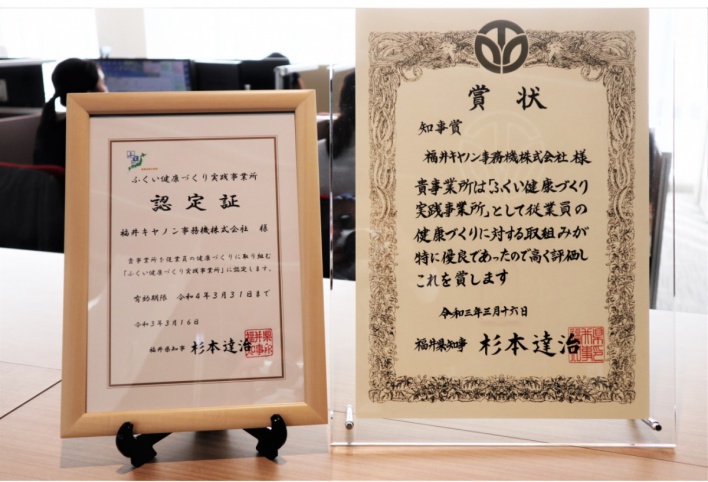 ふくい健康づくり実践事業所
認定証
福井キヤノン事務機株式会社 様
貴事業所を従業員の健康づくりに取り組む
「ふくい健康づくり実践事業所」に認定します。
有効期限 令和4年3月31日まで
令和3年3月16日
福井県知事 杉本達治
賞状
知事賞
福井キヤノン事務機株式会社 様
貴事業所は「ふくい健康づくり
実践事業所」として従業員の
健康づくりに対する取組みが
特に優良であったので高く評価し
これを賞します
令和三年三月十六日
福井県知事 杉本達治